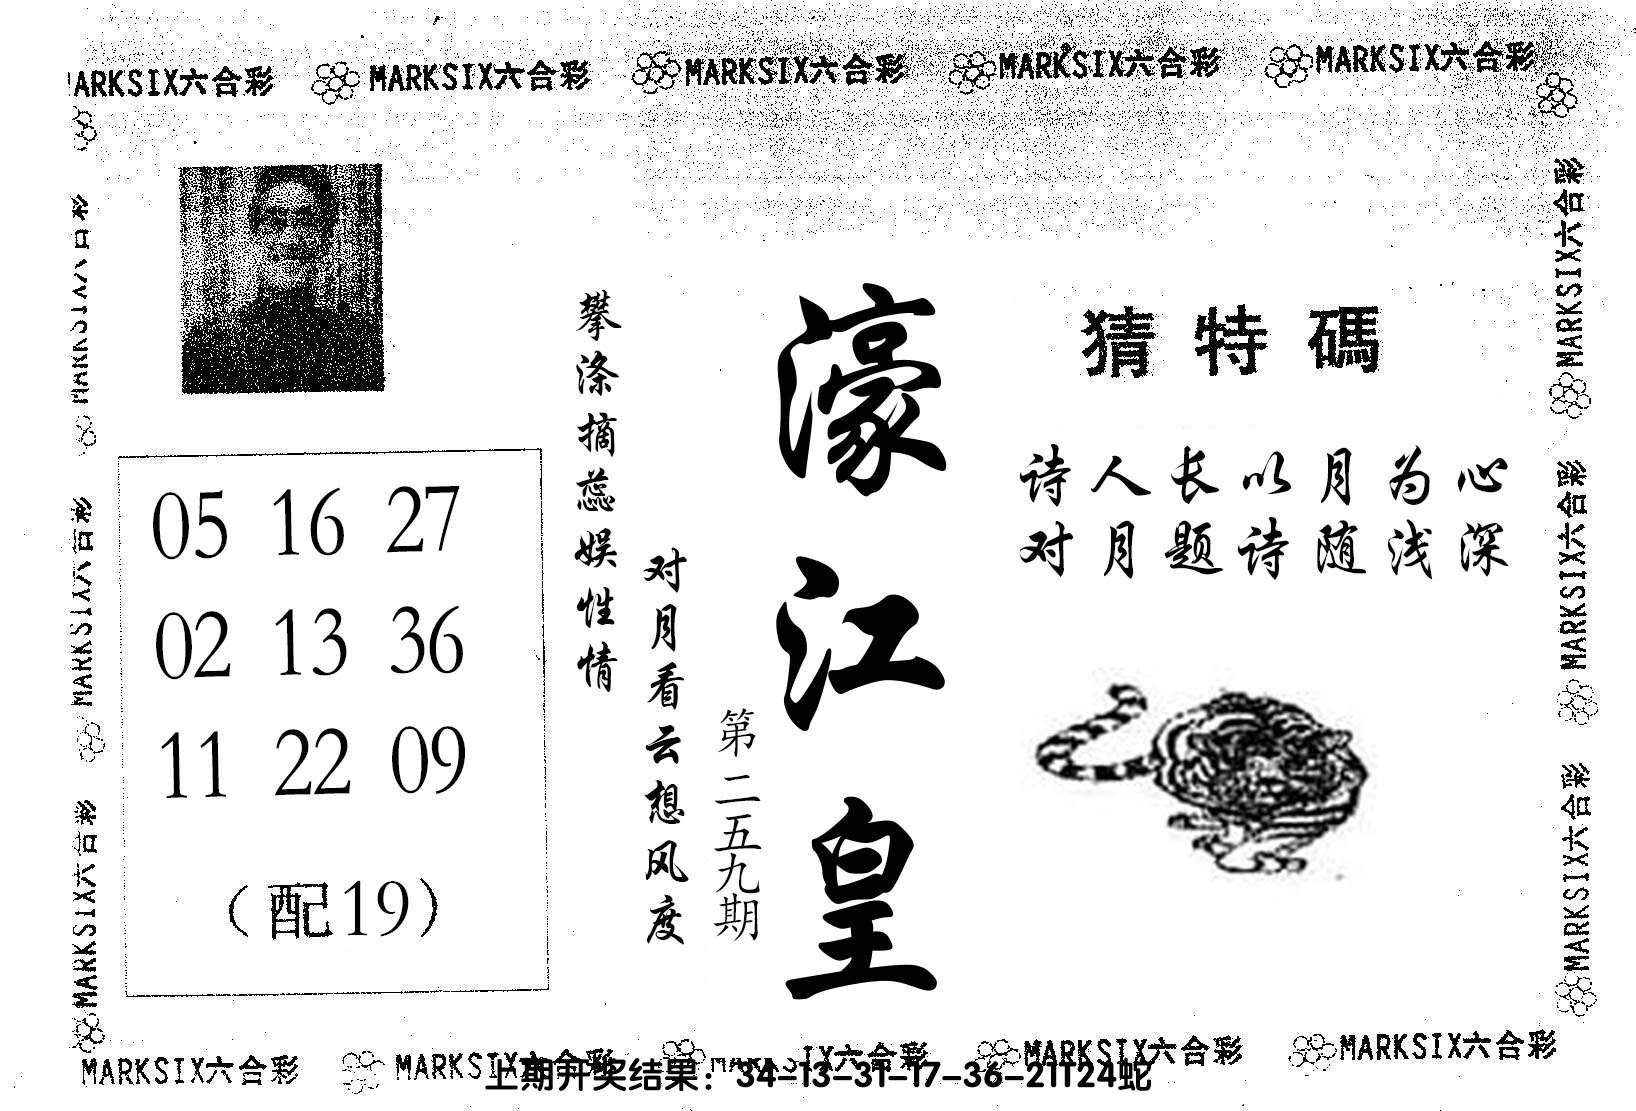 MARKSIX六合彩 MARKSIX六合彩 MARKSIX六合彩 MARKSIX六合彩 MARKSIX六合彩
猜特碼
诗人长以月为心
对月题诗随浅深
濠江皇
第二五九期
对月看云想风度
攀涤摘蕊娱性情
05 16 27
02 13 36
11 22 09
（配19）
MARKSIX六合彩
MARKSIX六合彩
MARKSIX六合彩
MARKSIX六合彩
MARKSIX六合彩
MARKSIX六合彩
MARKSIX六合彩 MARKSIX六合彩 MARKSIX六合彩 MARKSIX六合彩 MARKSIX六合彩
上期开奖结果：34-13-31-17-36-21T24蛇